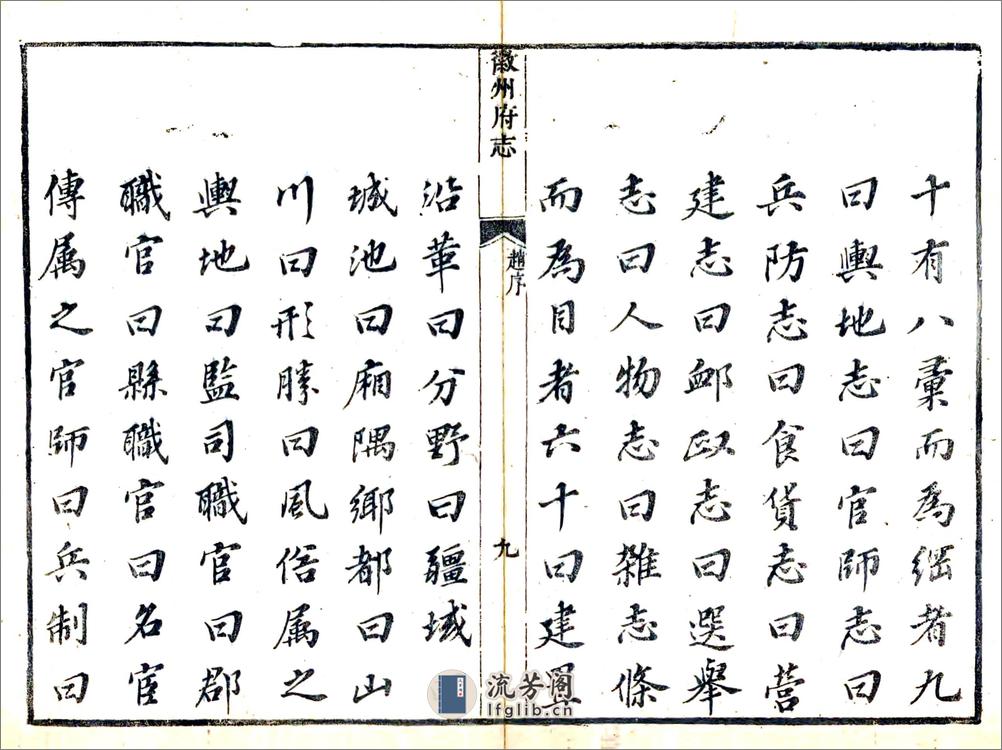 十有八彙而為綱者九
曰輿地志曰官師志曰
兵防志曰食貨志曰營
建志曰邮政志曰選舉
志曰人物志曰雜志條
而為目者六十曰建
徽州府志
趙序
九
沿革曰分野曰疆域
城池曰廂隅鄉都曰山
川曰形勝曰風俗属之
輿地曰監司職官曰郡
職官曰縣職官曰名宦
傳属之官師曰兵制曰
流芳阁
lfglib.cn